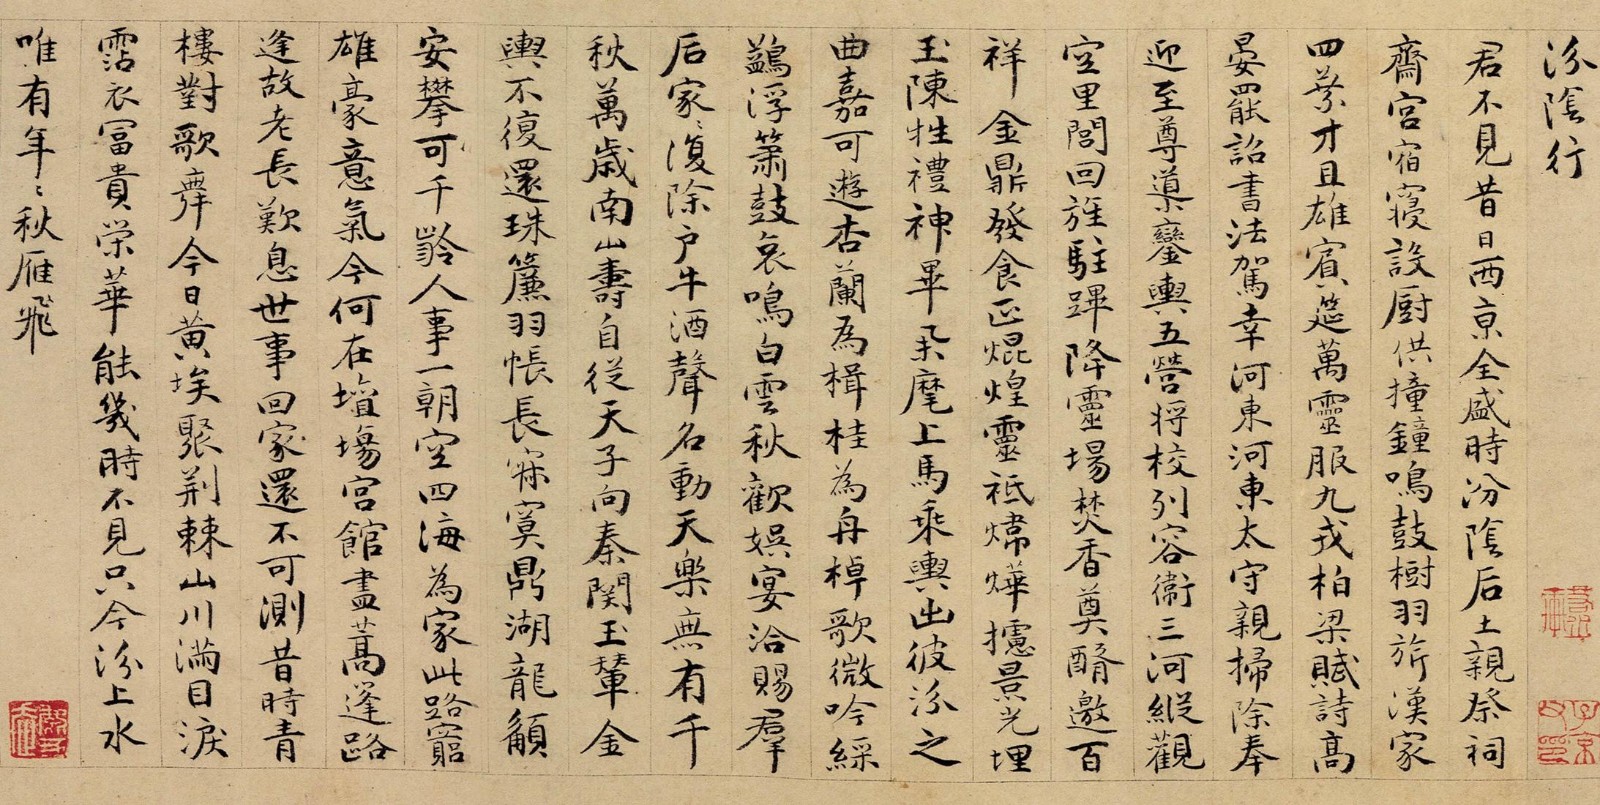 汾陰行
君不見昔日西京全盛時汾陰后土親祭祠
齋宮宿寢設厨供撞鐘鳴鼓樹羽旂漢家
四葉才且雄賓筵萬靈服九戎柏梁賦詩高
晏罷詔書法駕幸河東河東太守親掃除奉
迎至尊導鑾輿五營将校列容衞三河縱觀
空里閭回旌駐蹕降靈場焚香奠醑邀百
祥金鼎發食正焜煌靈祇煒燁攄景光埋
玉陳牲禮神畢舉麾上馬乘輿出彼汾之
曲嘉可遊木蘭為楫桂為舟棹歌微吟綵
鷁浮簫鼓哀鳴白雲秋歡娯宴洽賜羣
后家〻復除户牛酒聲名動天樂無有千
秋萬歲南山壽自從天子向秦関玉輦金
輿不復還珠簾羽帳長寂寞鼎湖龍髯
安攀可千齡人事一朝空四海為家此路窮
雄豪意氣今何在壇場宮館盡蒿蓬路
逢故老長歎息世事回家還不可測昔時青
樓對歌舞今日黄埃聚荆棘山川滿目淚
霑衣冨貴榮華能幾時不見只今汾上水
唯有年〻秋雁飛